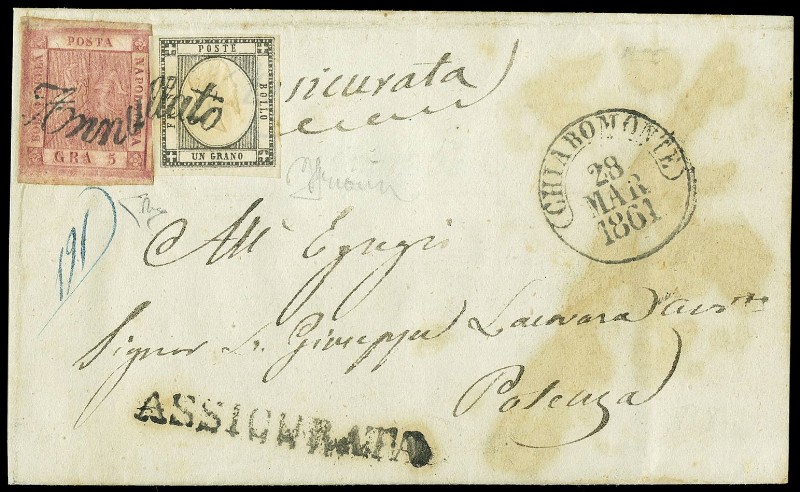 POSTA
NAPOLETANA
GRA 5
BOLLO DELLA
POSTE
BOLLO
UN GRANO
Annullato
Assicurata
CHIAROMONTE
28
MAR
1861
191
All' Egregio
Signor D. Giuseppe
Potenza
ASSICURATA